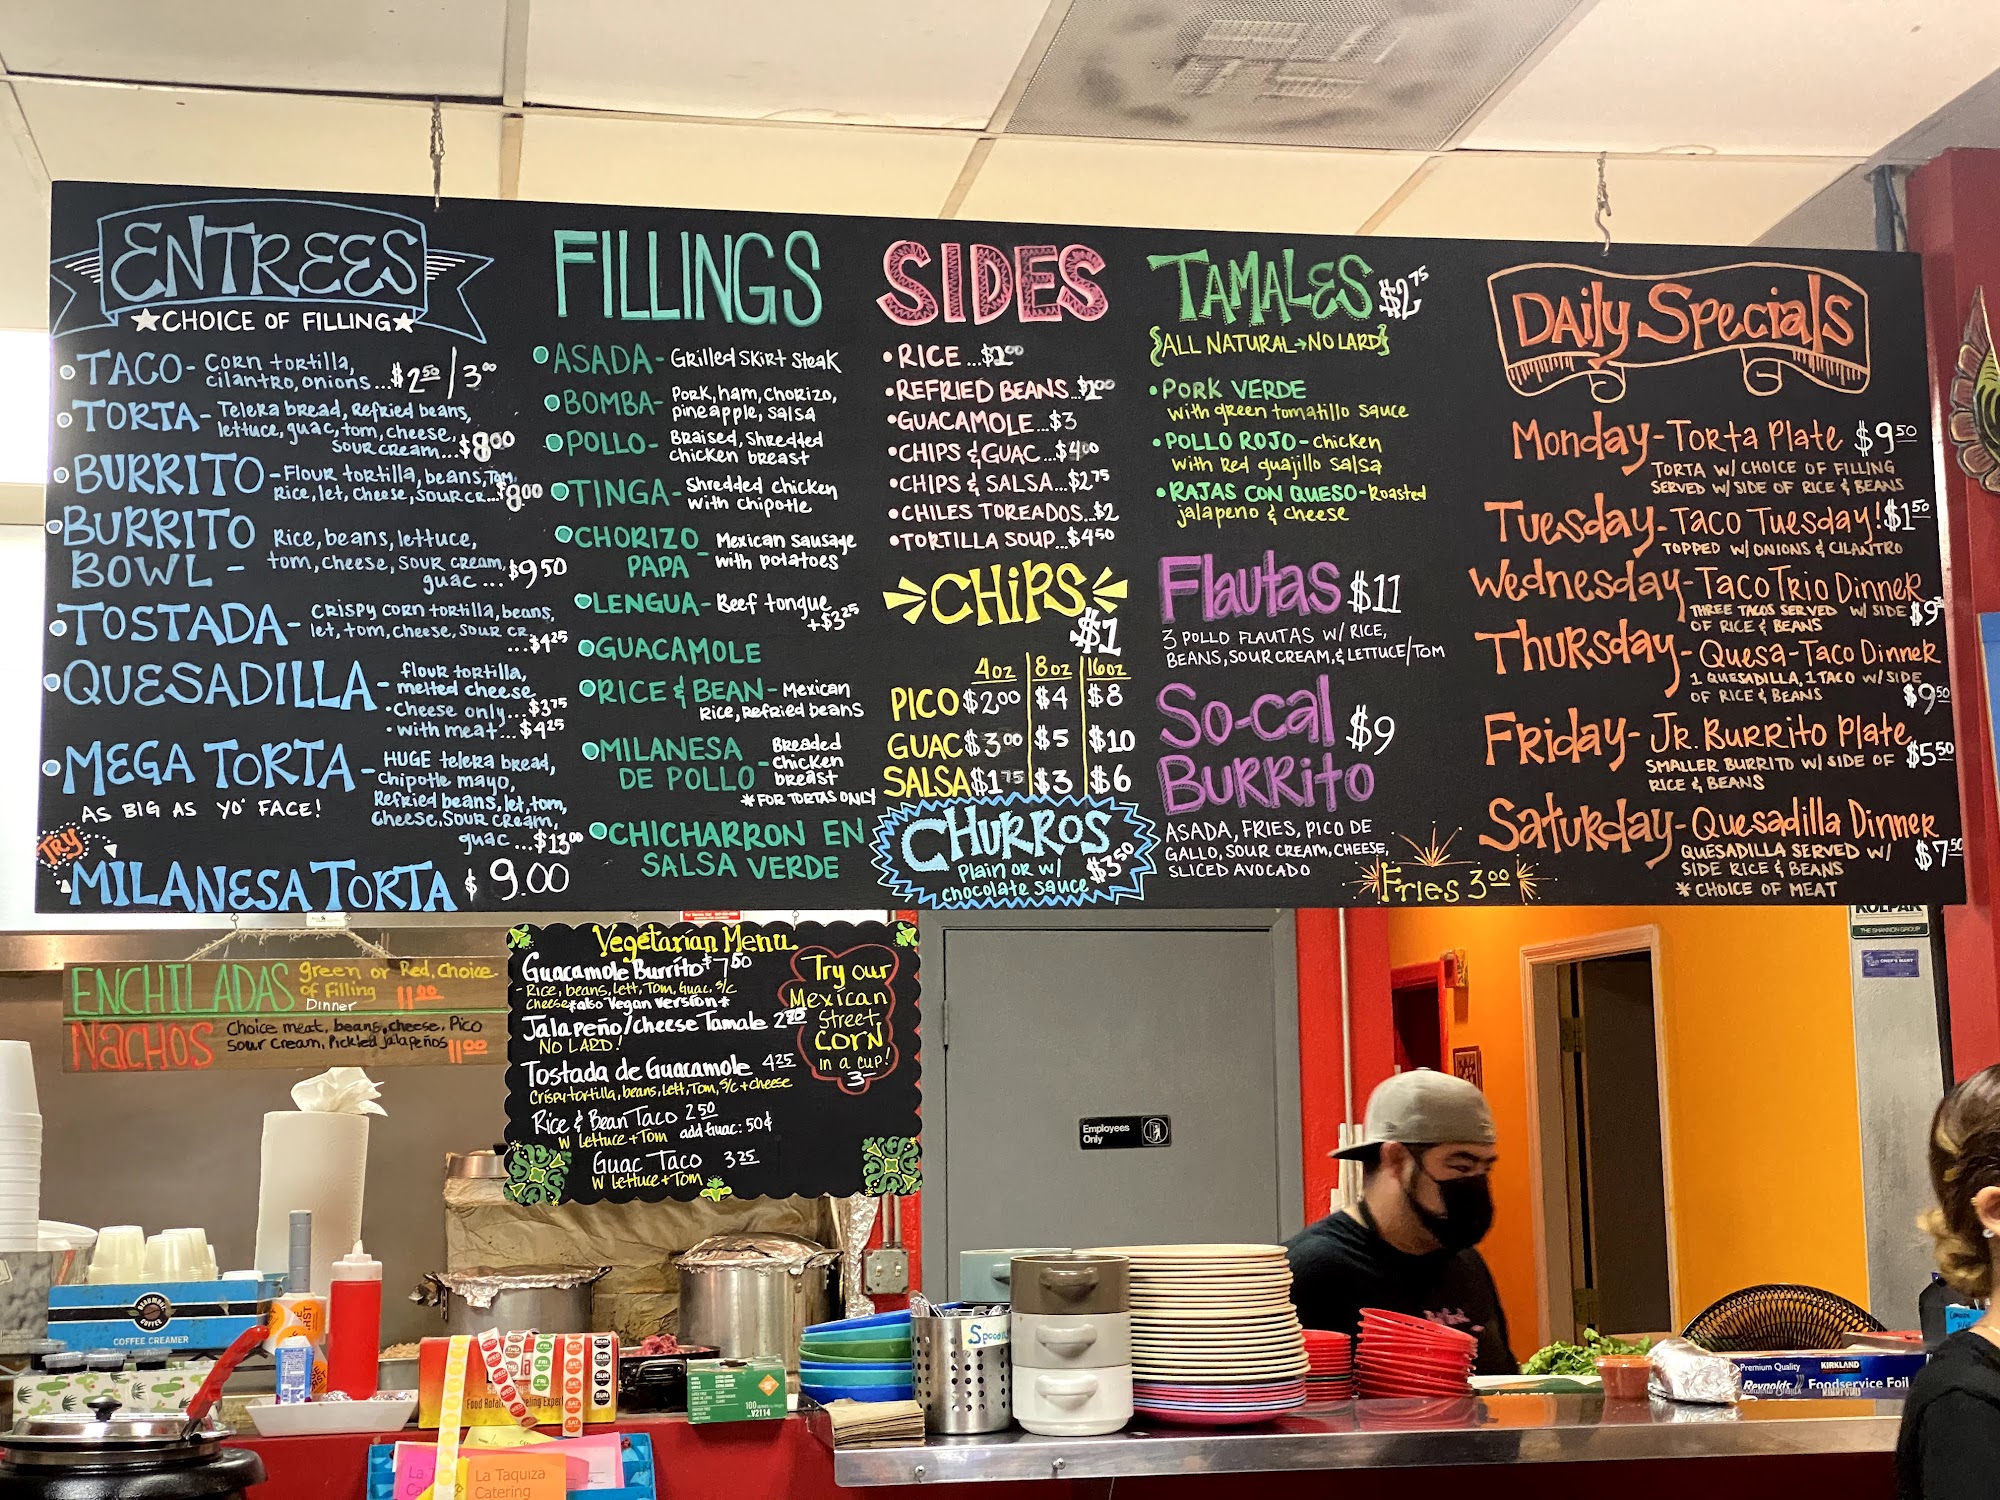 ENTREES
★CHOICE OF FILLING★
TACO - Corn tortilla,
cilantro, onions...$2.50 / 3.00
TORTA - Telera bread, Refried beans,
lettuce, guac, tom, cheese,
sour cream...$8.00
BURRITO - Flour tortilla, beans, Tom,
Rice, let, cheese, sour cr...$8.00
BURRITO BOWL - Rice, beans, lettuce,
tom, cheese, sour cream,
guac ... $9.50
TOSTADA - Crispy corn tortilla, beans,
let, tom, cheese, sour cr.
...$4.25
QUESADILLA - flour tortilla,
melted cheese
• Cheese only...$3.75
• with meat...$4.25
MEGA TORTA - HUGE telera bread,
AS BIG AS YO' FACE!
chipotle mayo,
Refried beans, let, tom,
cheese, sour cream,
guac ...$13.00
TRY
MILANESA TORTA $9.00
FILLINGS
ASADA - Grilled Skirt Steak
BOMBA - Pork, ham, chorizo,
pineapple, salsa
POLLO - Braised, Shredded
chicken breast
TINGA - Shredded chicken
with chipotle
CHORIZO PAPA - Mexican sausage
with potatoes
LENGUA - Beef tongue
+$3.25
GUACAMOLE
RICE & BEAN - Mexican
Rice, Refried beans
MILANESA DE POLLO - Breaded
chicken
breast
*FOR TORTAS ONLY
CHICHARRON EN
SALSA VERDE
SIDES
• RICE ...$2.00
• REFRIED BEANS...$2.00
• GUACAMOLE...$3
• CHIPS & GUAC...$4.00
• CHIPS & SALSA...$2.75
• CHILES TOREADOS...$2
• TORTILLA SOUP...$4.50
CHIPS
$1
4oz | 8oz | 16oz
PICO $2.00 $4 $8
GUAC $3.00 $5 $10
SALSA $1.75 $3 $6
CHURROS
Plain or w/
chocolate sauce $3.50
TAMALES $2.75
{ALL NATURAL→NO LARD}
• PORK VERDE
with green tomatillo sauce
• POLLO ROJO - chicken
with Red guajillo salsa
• RAJAS CON QUESO - Roasted
jalapeno & cheese
Flautas $11
3 POLLO FLAUTAS W/ RICE,
BEANS, SOUR CREAM, & LETTUCE/TOM
So-cal
Burrito $9
ASADA, FRIES, PICO DE
GALLO, SOUR CREAM, CHEESE,
SLICED AVOCADO
Fries 3.00
Daily Specials
Monday - Torta Plate $9.50
TORTA W/ CHOICE OF FILLING
SERVED W/ SIDE OF RICE & BEANS
Tuesday - Taco Tuesday! $1.50
TOPPED W/ ONIONS & CILANTRO
Wednesday - Taco Trio Dinner
THREE TACOS SERVED W/ SIDE $9
OF RICE & BEANS
Thursday - Quesa-Taco Dinner
1 QUESADILLA, 1 TACO W/ SIDE
OF RICE & BEANS $9.50
Friday - Jr. Burrito Plate
SMALLER BURRITO W/ SIDE OF $5.50
RICE & BEANS
Saturday - Quesadilla Dinner
QUESADILLA SERVED W/ $7.50
SIDE RICE & BEANS
* CHOICE OF MEAT
ENCHILADAS green or Red, Choice
of Filling 11.00
Dinner
NACHOS Choice meat, beans, cheese, Pico
Sour Cream, Pickled jalapeños 11.00
Vegetarian Menu
Guacamole Burrito $7.50
- Rice, beans, Lett, Tom, Guac, s/c
cheese *also Vegan version*
Jalapeño/cheese Tamale 2.70
NO LARD!
Tostada de Guacamole 4.25
Crispy tortilla, beans, Lett, Tom, s/c + cheese
Rice & Bean Taco 2.50
W Lettuce + Tom add Guac: 50¢
Guac Taco 3.25
W Lettuce + Tom
Try our
Mexican
Street
CORN
in a cup!
3-
Employees
Only
THE SHANNON GROUP
COFFEE CREAMER
Spoon
V2114
100
La Taquiza
Catering
Premium Quality KIRKLAND
Reynolds Foodservice Foil